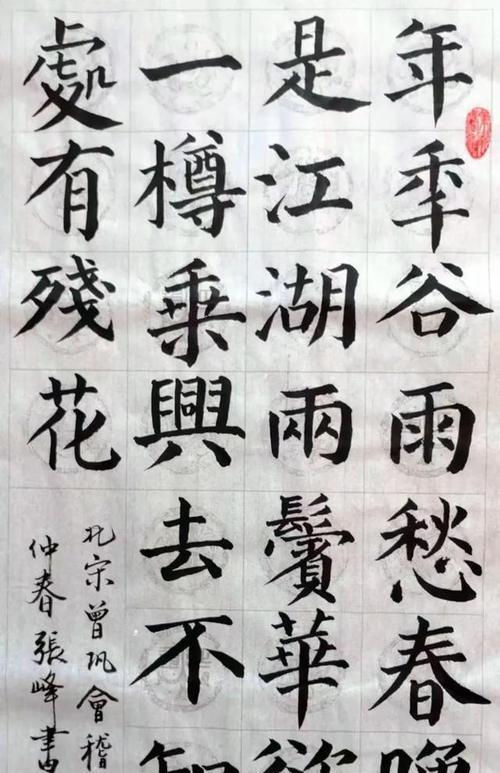 年秊谷雨愁春晚
是江湖兩鬢華欲
一樽乗興去不知
處有殘花
北宋曾巩會稽
仲春張峰書